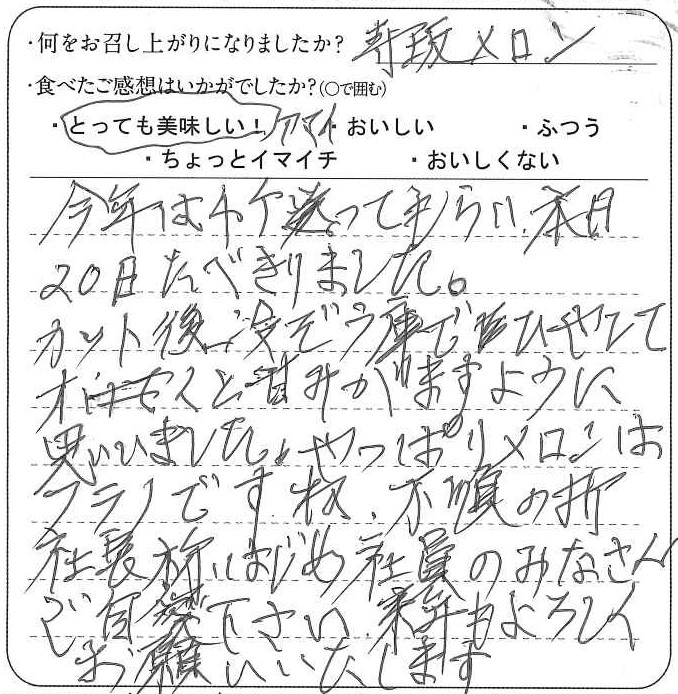 ・何をお召し上がりになりましたか? 寺坂メロン
・食べたご感想はいかがでしたか?(○で囲む)
・とっても美味しい! アマイ ・おいしい ・ふつう
・ちょっとイマイチ ・おいしくない
今年は4ケ送ってもらい、本日
20日たべきりました。
カット後、冷ぞう庫でひやして
おけせんと甘みがますように
思いました。やっぱりメロンは
フラノですネ、不順の折
社長様はじめ社員のみなさん
ご自愛下さい、来年もよろしく
お願いいたします